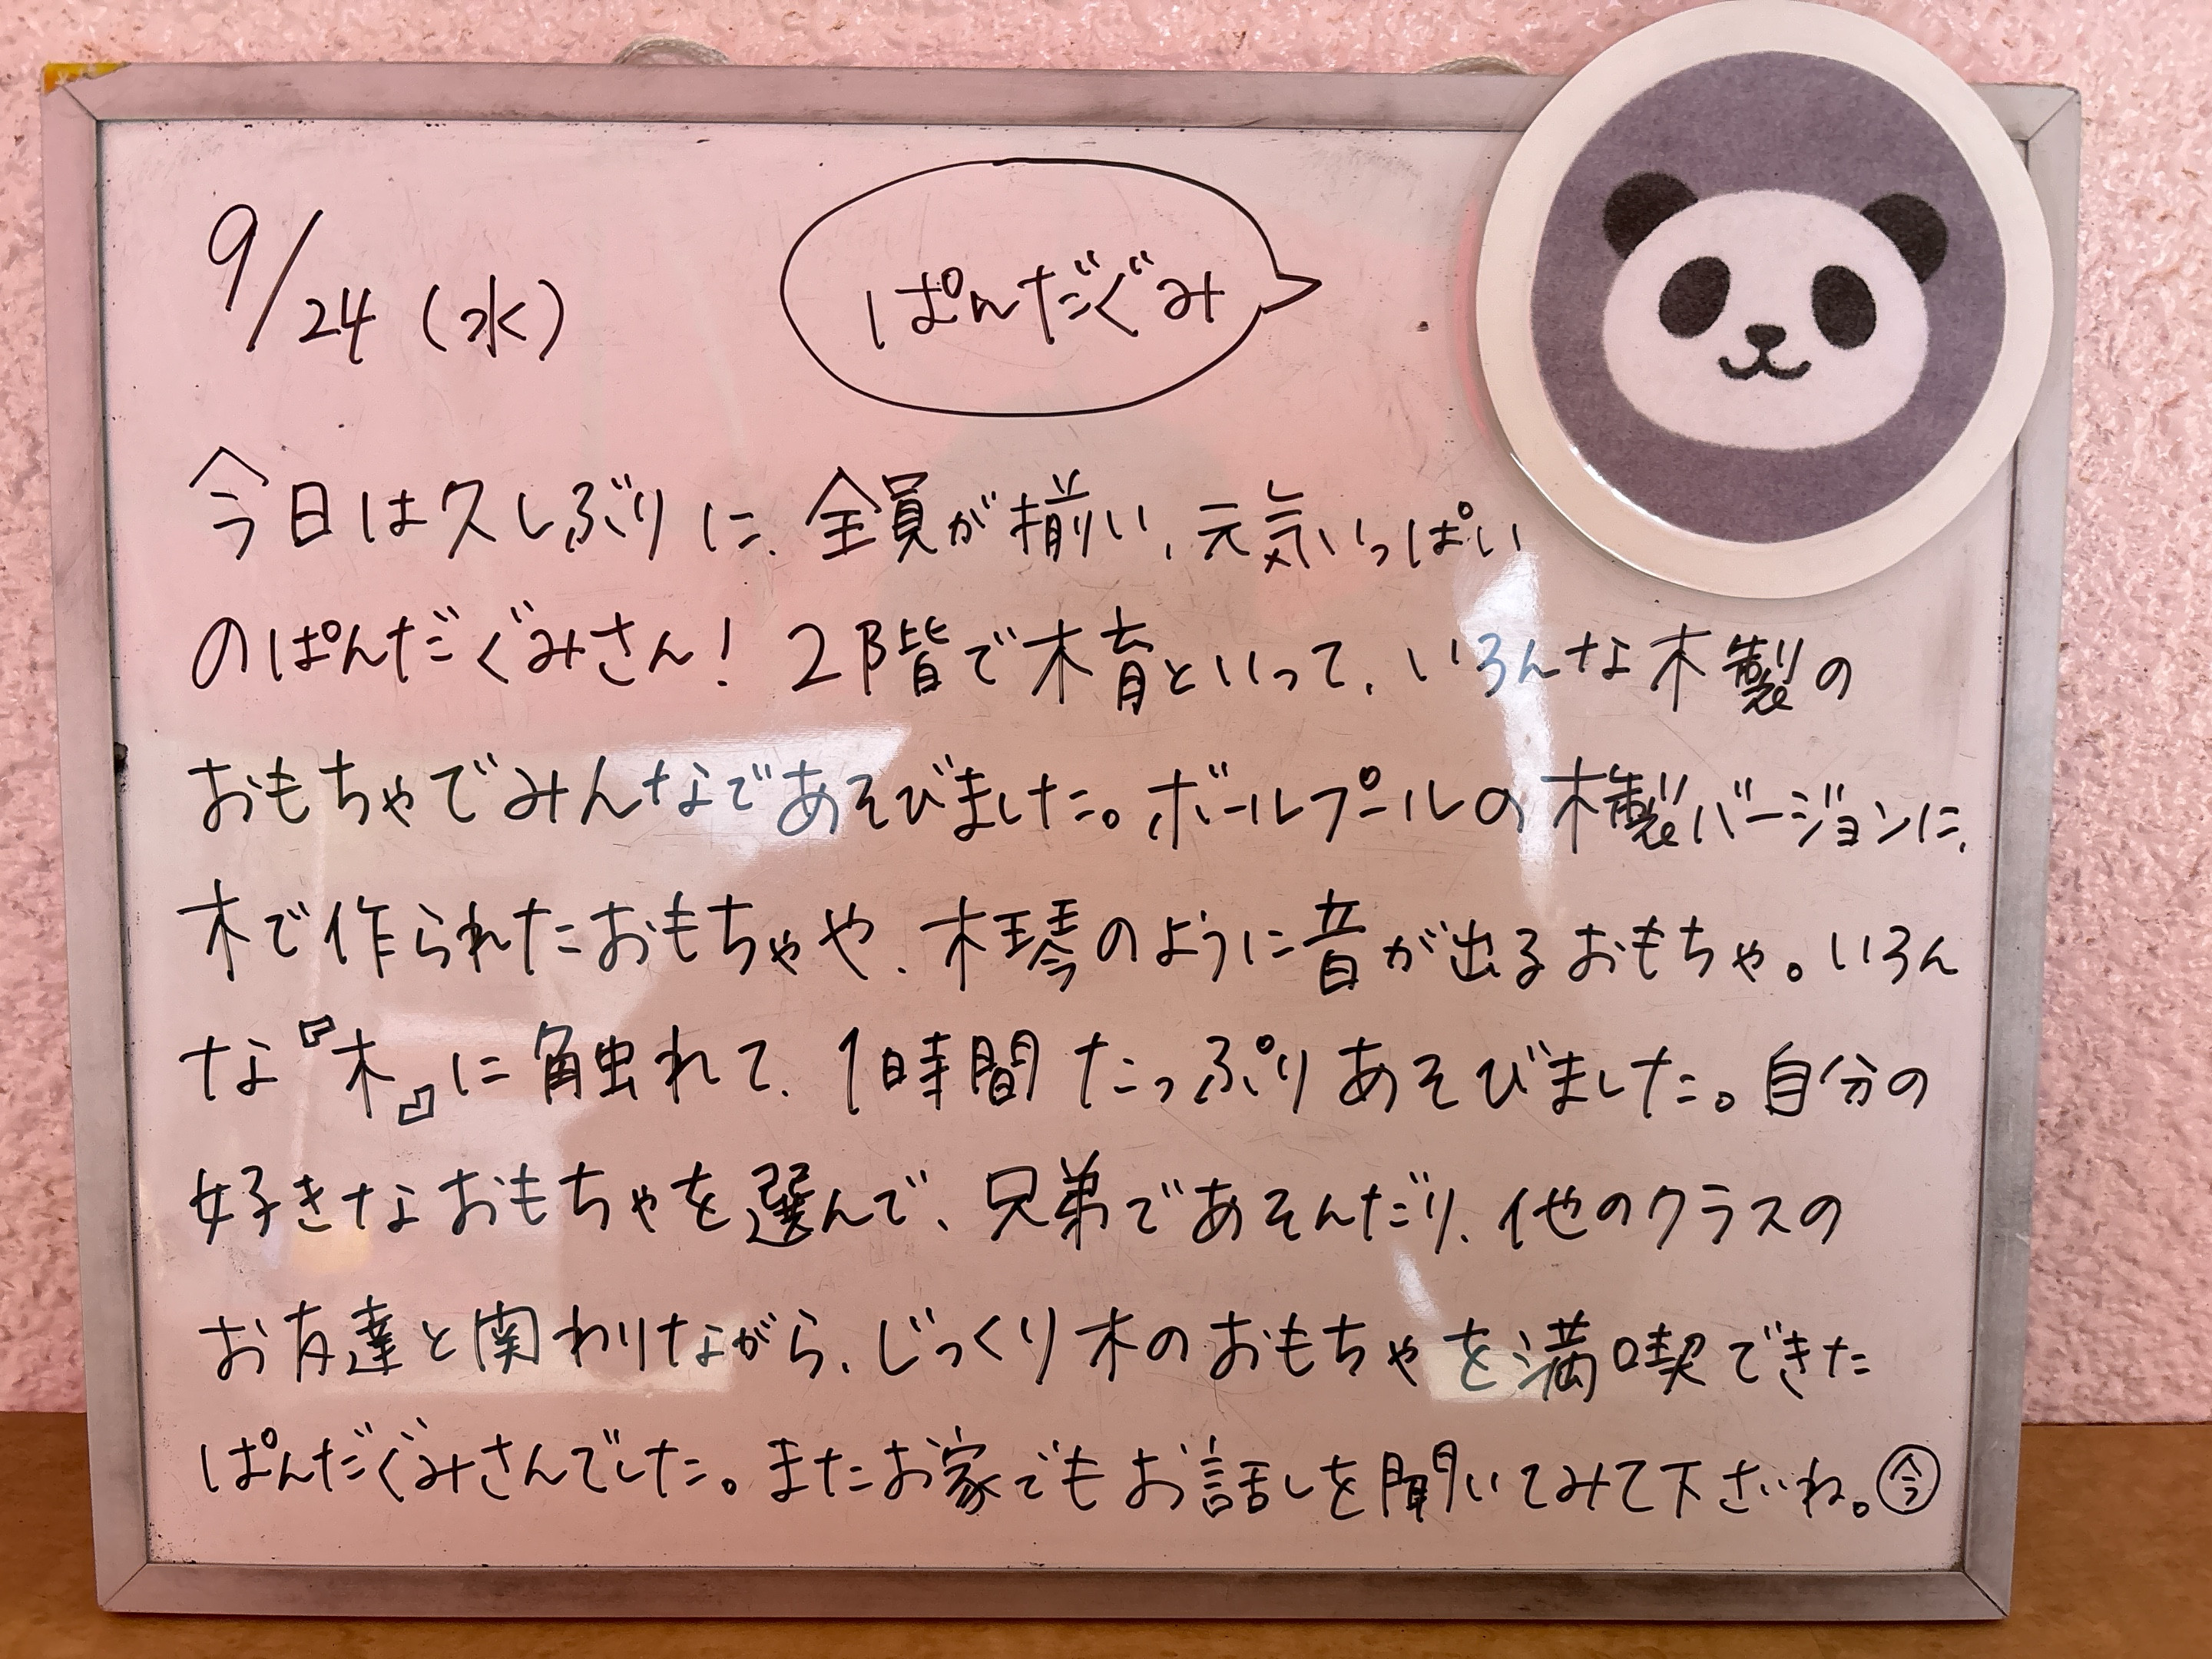 9/24（水）
ぱんだぐみ
今日は久しぶりに、全員が揃い、元気いっぱい
のぱんだぐみさん！2階で木育といって、いろんな木製の
おもちゃでみんなであそびました。ボールプールの木製バージョンに、
木で作られたおもちゃや、木琴のように音が出るおもちゃ。いろん
な『木』に触れて、1時間たっぷりあそびました。自分の
好きなおもちゃを選んで、兄弟であそんだり、他のクラスの
お友達と関わりながら、じっくり木のおもちゃを満喫できた
ぱんだぐみさんでした。またお家でもお話しを聞いてみて下さいね。㋿今